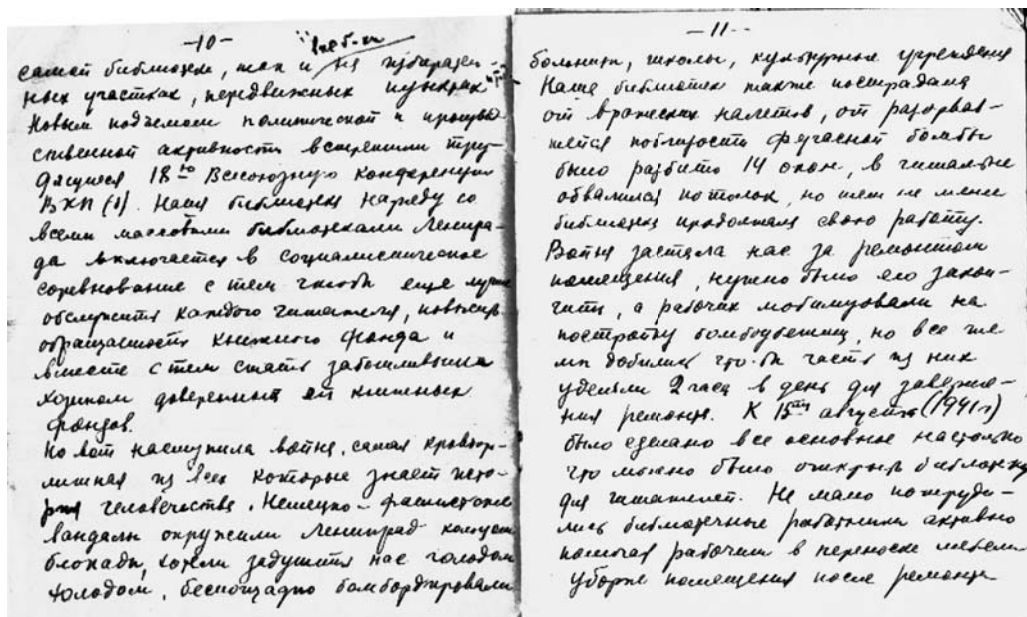 -10-
самой библиотеки, так и на избирател-
ных участках, передвижных пунктах
Новым подъемом политической и производ
ственной активности встретили тру-
дящиеся 18ую Всесоюзную конференцию
ВКП(б). Наша библиотека наряду со
всеми массовыми библиотеками Ленингра-
да включается в социалистическое
соревнование с тем чтобы еще лучше
обслужить каждого читателя, повысив
обращаемость книжного фонда и
вместе с тем стать заботливым
хозяином доверенных ей книжных
фондов.
Но вот наступила война, самая кровопро-
литная из всех которые знает исто-
рия человечества. Немецко-фашистские
вандалы окружили Ленинград кольцом
блокады, хотели задушить нас голодом
холодом, беспощадно бомбардировали
-11-
больницы, школы, культурные учреждения
Наша библиотека также пострадала
от вражеских налетов, от разорвав-
шейся поблизости фугасной бомбы
было разбито 14 окон, в читальне
обвалился потолок, но тем не менее
библиотека продолжала свою работу.
Война застала нас за ремонтом
помещения, нужно было его закон-
чить, а рабочих мобилизовали на
постройку бомбоубежищ, но все же
мы добились что-бы часть из них
уделяли 2 часа в день для заверше-
ния ремонта. К 15му августа (1941 г)
было сделано все основное настолько
что можно было открыть библиотеку
для читателей. Не мало потруди-
лись библиотечные работники активно
помогая рабочим в переноске мебели
уборке помещения после ремонта